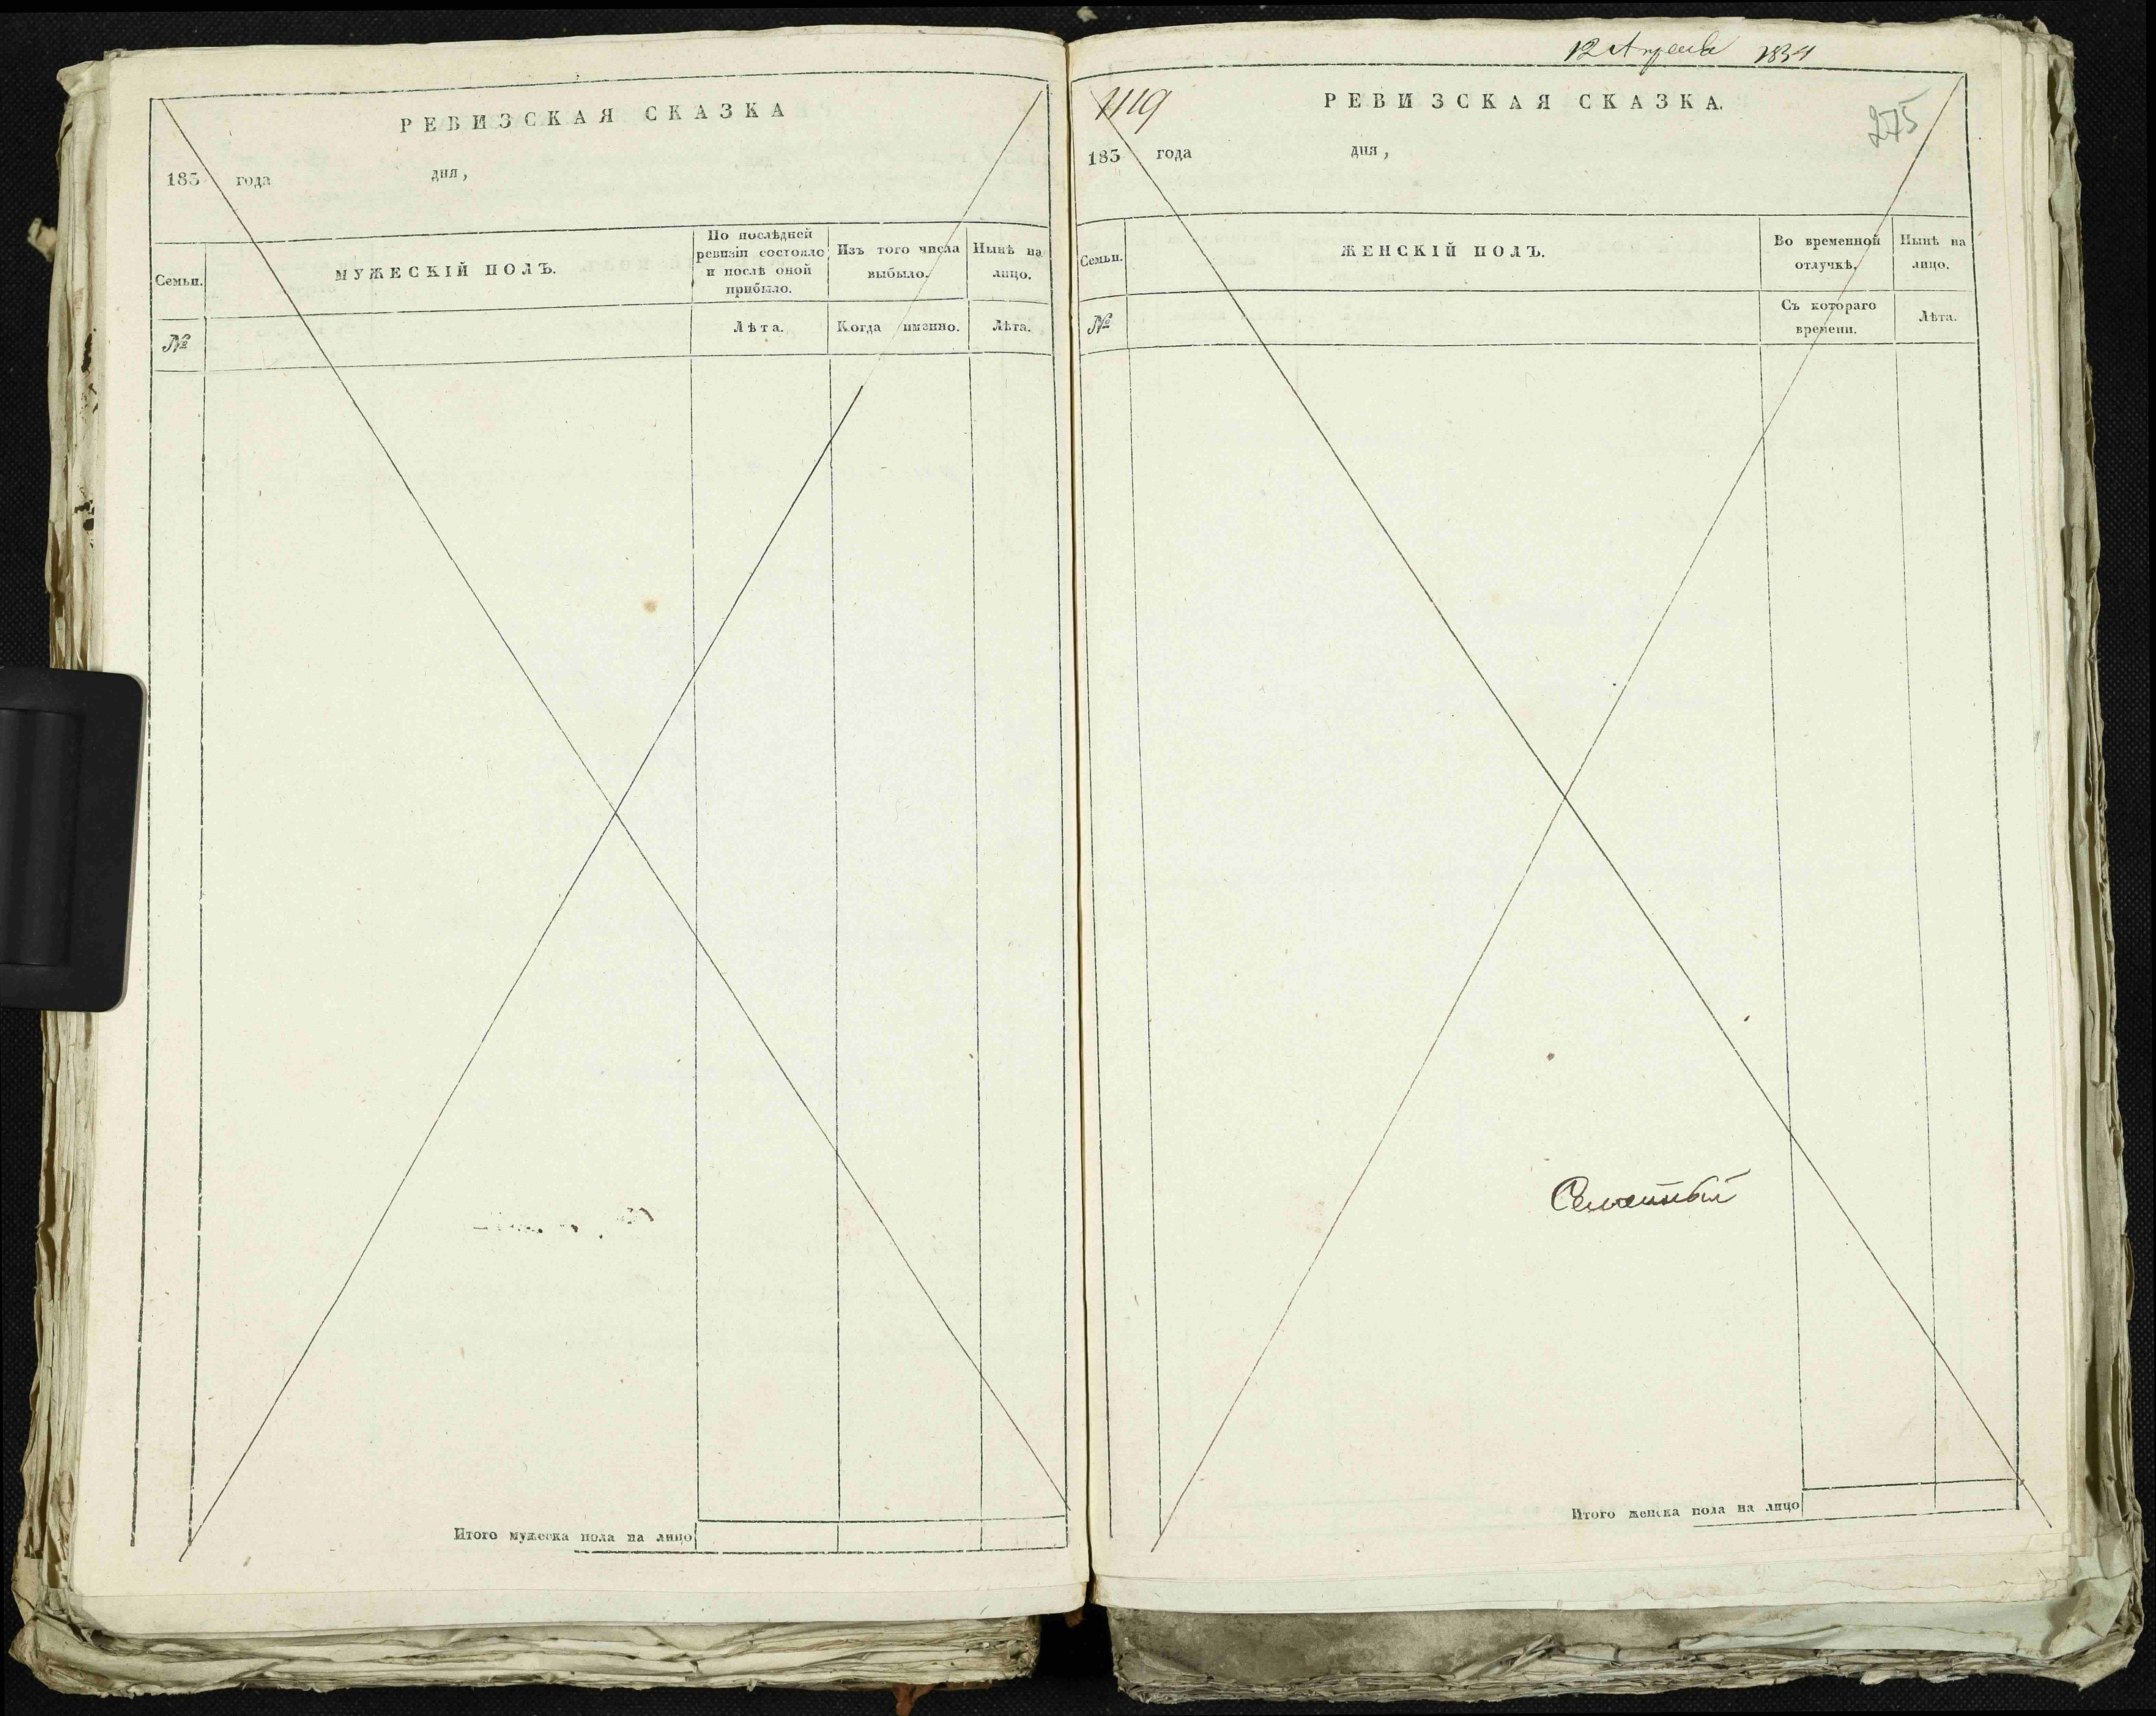 РЕВИЗСКАЯ СКАЗКА
183 года дня,
Семьи.
МУЖЕСКІЙ ПОЛЪ.
По послѣдней
ревизіи состояло
и послѣ оной
прибыло.
Изъ того числа
выбыло.
Нынѣ на
лицо.
№
Лѣта.
Когда именно.
Лѣта.
Итого мужеска пола на лицо
12 Апреля 1834
1119
РЕВИЗСКАЯ СКАЗКА.
275
183 года дня,
Семьи.
ЖЕНСКІЙ ПОЛЪ.
Во временной
отлучкѣ.
Нынѣ на
лицо.
№
Съ котораго
времени.
Лѣта.
Итого женска пола на лицо